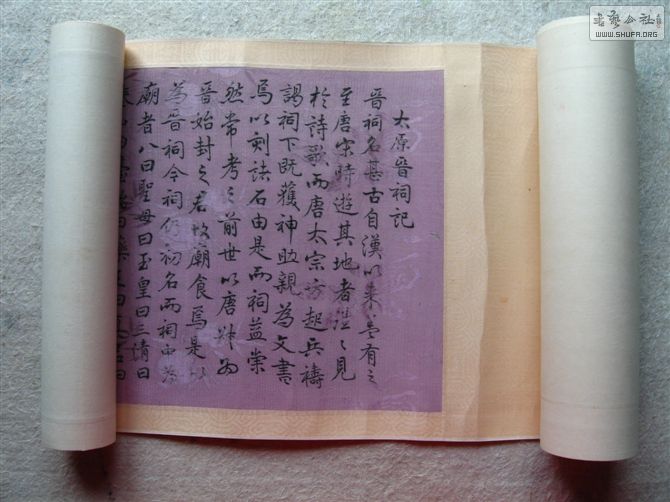 書藝公社
WWW.SHUFA.ORG
太原晉祠記
晉祠名甚古自漢以来盖有之
至唐宋時遊其地者往々見
於詩歌而唐太宗方起兵禱
謁祠下既獲神助親為文書
焉以刻諸石由是而祠益崇
然常考之前世以唐叔為
晉始封之君故廟食焉是以
為晉祠今祠仍初名而祠為
廟者八曰聖母曰玉皇曰三清曰